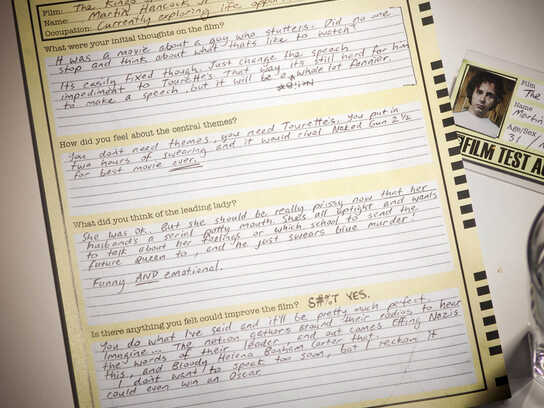 Film: The Kings
Name: Martin Hancock Jr
Occupation: Currently exploring life oppor
What were your initial thoughts on the film?
It was a movie about a guy who stutters. Did no one
stop and think about what that's like to watch?
It's easily fixed though. Just change the speech
impediment to Tourette's. That way it's still hard for him
to make a speech, but it will be a whole lot funnier.
How did you feel about the central themes?
You don't need themes, you need Tourettes. You put in
two hours of swearing and it would rival Naked Gun 2 1/2
for best movie ever.
What did you think of the leading lady?
She was OK. But she should be really pissy now that her
husband's a serial potty mouth. She's all uptight and wants
to talk about her feelings or which school to send the
future Queen to, and he just swears blue murder.
Funny AND emotional.
Is there anything you felt could improve the film? S#%T YES.
You do what I've said and it'll be pretty much perfect.
Imagine... The nation gathers around their radios to hear
the words of their leader, and out comes Effing Nazis
this, and Bloody Helena Bonham Carter that.
I don't want to speak too soon, but I reckon it
could even win an Oscar.
Film
The
Name
Martin
Age/Sex
31/
FILM TEST A